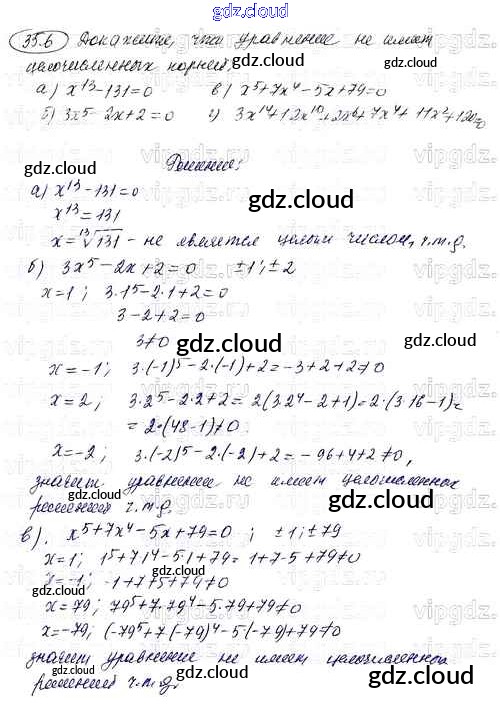 gdz.cloud
35.6 Докажите, что уравнение не имеет
целочисленных корней:
а) x¹³-131=0 в) x⁵+7x⁴-5x+79=0
б) 3x⁵-2x+2=0 г) 3x¹⁴+12x¹⁰+2x⁶+7x⁴+11x²+120=0
gdz.cloud gdz.cloud
Решение:
gdz.cloud
а) x¹³-131=0
x¹³=131
x=¹³√131 - не является целым числом, ч.т.д.
б) 3x⁵-2x+2=0 ±1; ±2
x=1; 3·1⁵-2·1+2=0
3-2+2=0
3≠0
gdz.cloud gdz.cloud
x=-1; 3·(-1)⁵-2·(-1)+2=-3+2+2≠0
x=2; 3·2⁵-2·2+2=2(3·2⁴-2+1)=2·(3·16-1)=
=2·(48-1)≠0.
x=-2; 3·(-2)⁵-2·(-2)+2=-96+4+2≠0,
значит уравнение не имеет целочисленных
решений ч.т.д.
gdz.cloud
в). x⁵+7x⁴-5x+79=0; ±1; ±79
x=1; 1⁵+7·1⁴-5·1+79=1+7-5+79≠0
x=-1; -1+7+5+79≠0
gdz.cloud gdz.cloud
x=79; 79⁵+7·79⁴-5·79+79≠0
x=-79; (-79⁵+7(-79)⁴-5(-79)+79≠0
значит уравнение не имеет целочисленных
решений ч.т.д.
gdz.cloud gdz.cloud